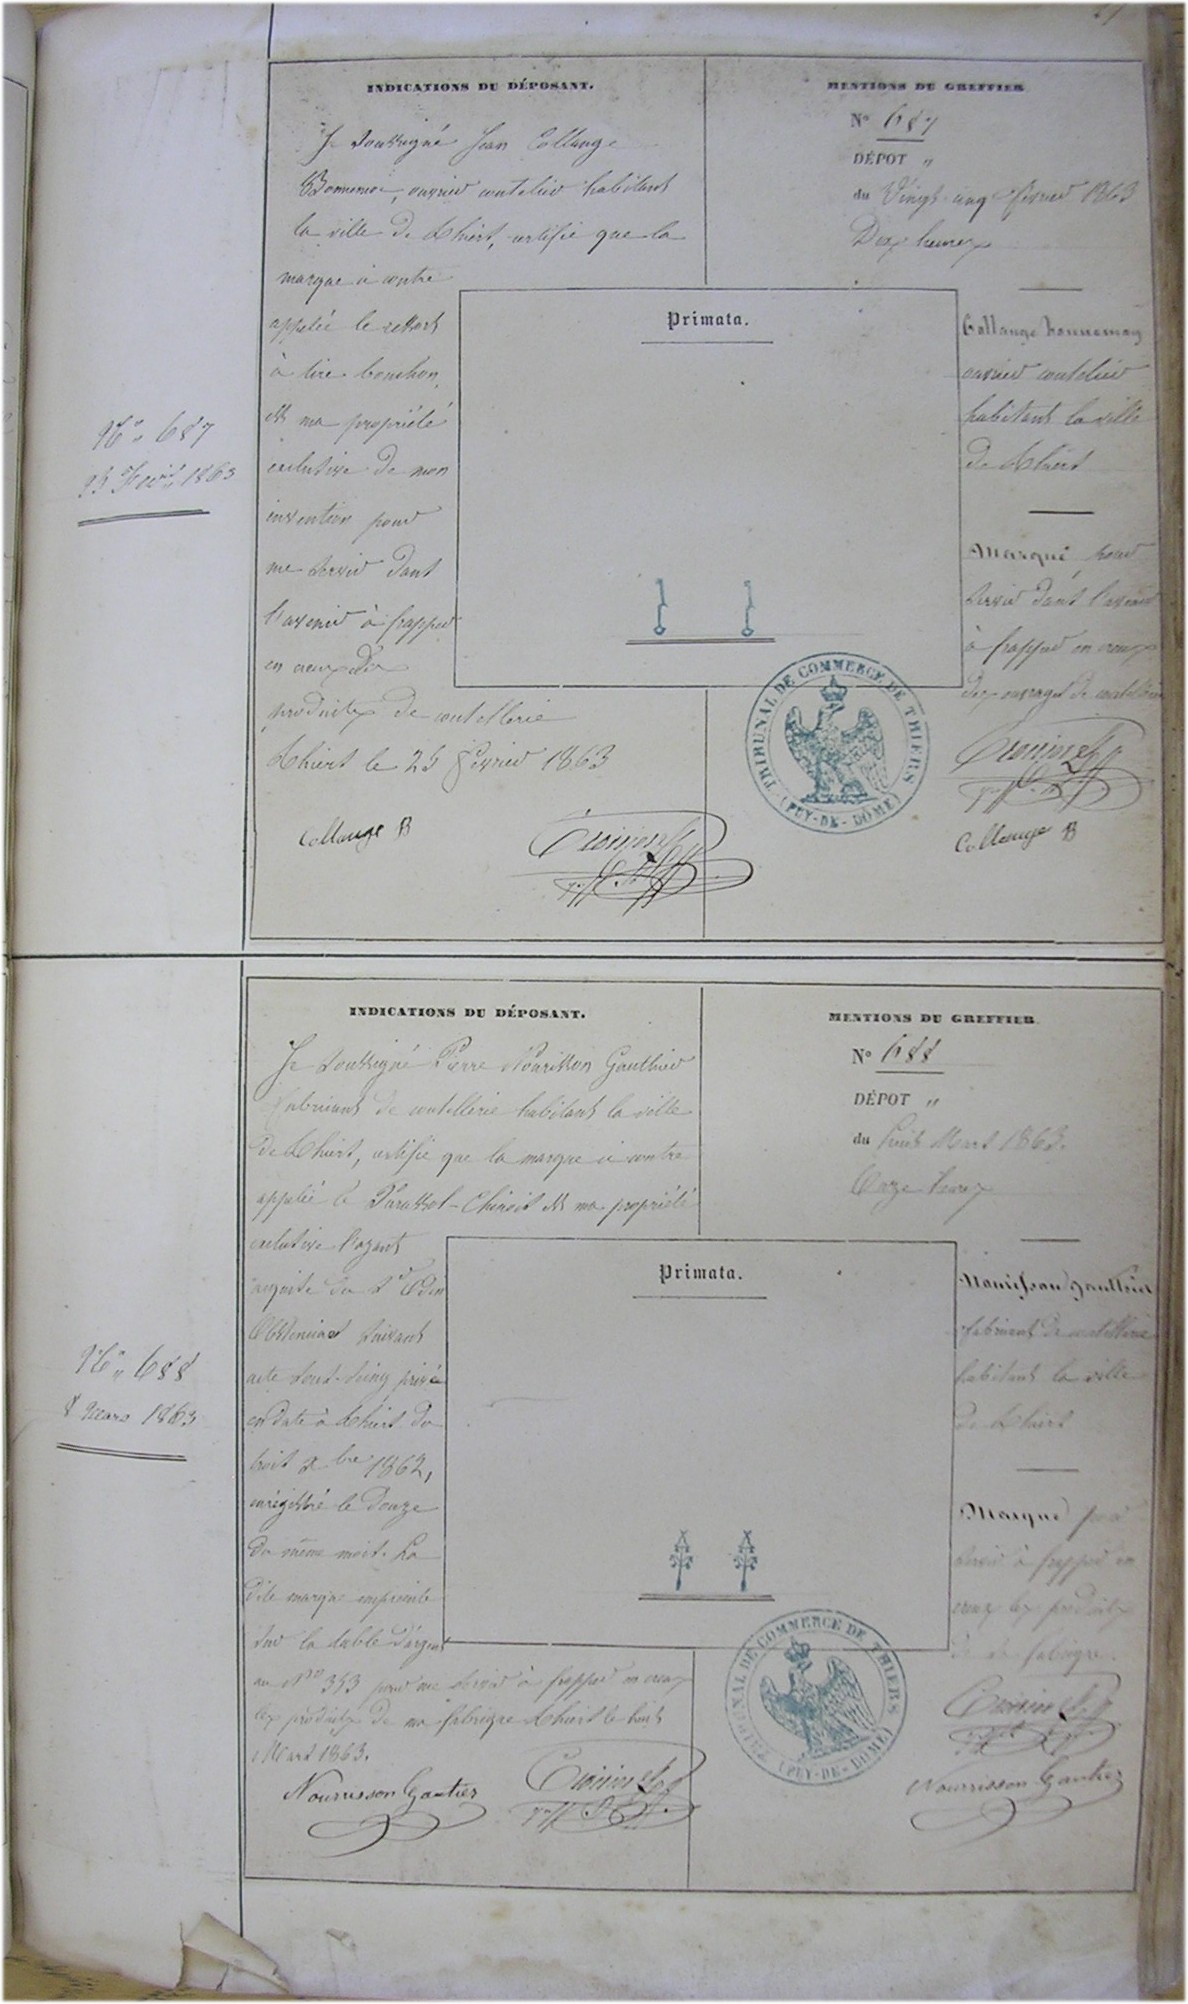 N° 687
25 Févr 1863
INDICATIONS DU DÉPOSANT.
Je soussigné Jean Collange
Bonnemoy, ouvrier coutelier habitant
la ville de Thiers, certifie que la
marque ci contre
appelée le ressort
à tire bouchon,
est ma propriété
exclusive de mon
invention pour
me servir dans
l'avenir à frapper
en creux des
produits de coutellerie
Thiers le 25 février 1863
Collange B
Croizier
MENTIONS DU GREFFIER
N° 687
DÉPOT "
du Vingt cinq février 1863
Dix heures
Primata.
Collange Bonnemoy
ouvrier coutelier
habitant la ville
de Thiers
Marque pour
servir dans l'avenir
à frapper en creux
des ouvrages de coutellerie
TRIBUNAL DE COMMERCE DE THIERS
(PUY-DE-DÔME)
Collange B
N° 688
8 Mars 1863
INDICATIONS DU DÉPOSANT.
Je soussigné Pierre Nourisson Gauthier
fabricant de coutellerie habitant la ville
de Thiers, certifie que la marque ci contre
appelée le Parassol-Chinois est ma propriété
exclusive l'ayant
acquise du Sr
suivant
acte sous-seing privé
en date à Thiers du
huit xbre 1862,
enregistré le douze
du même mois. La
dite marque empreinte
sur la table d'argent
au N° 353 pour me servir à frapper en creux
les produits de ma fabrique Thiers le huit
Mars 1863.
Nourrisson Gautier
MENTIONS DU GREFFIER
N° 688
DÉPOT "
du huit Mars 1863.
Onze heures
Primata.
Nourisson Gauthier
fabricant de coutellerie
habitant la ville
de Thiers
Marque pour
servir à frapper en
creux les produits
de sa fabrique.
TRIBUNAL DE COMMERCE DE THIERS
(PUY-DE-DÔME)
Nourrisson Gautier